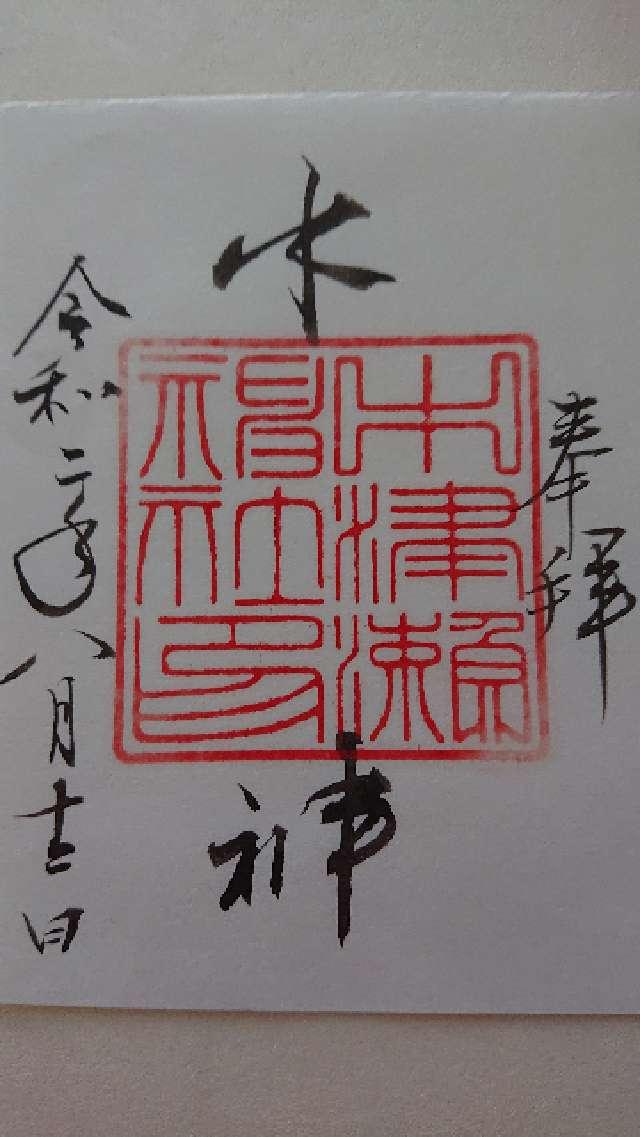 奉拝
水神
中津瀬
神社印
令和二年八月十二日